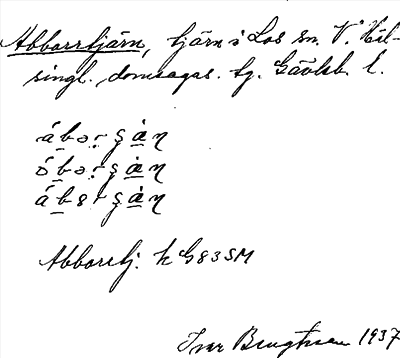 Abborrtjärn, tjärn i Los sn. V. Häl-
singl. domsagas. tg. Gävleb. l.
ábə‑r ʂàn̥
óbə‑r ʂàn̥
ábər ʂàn̥
Abborrtj. k G83SM
Ivar Bengtsson 1937